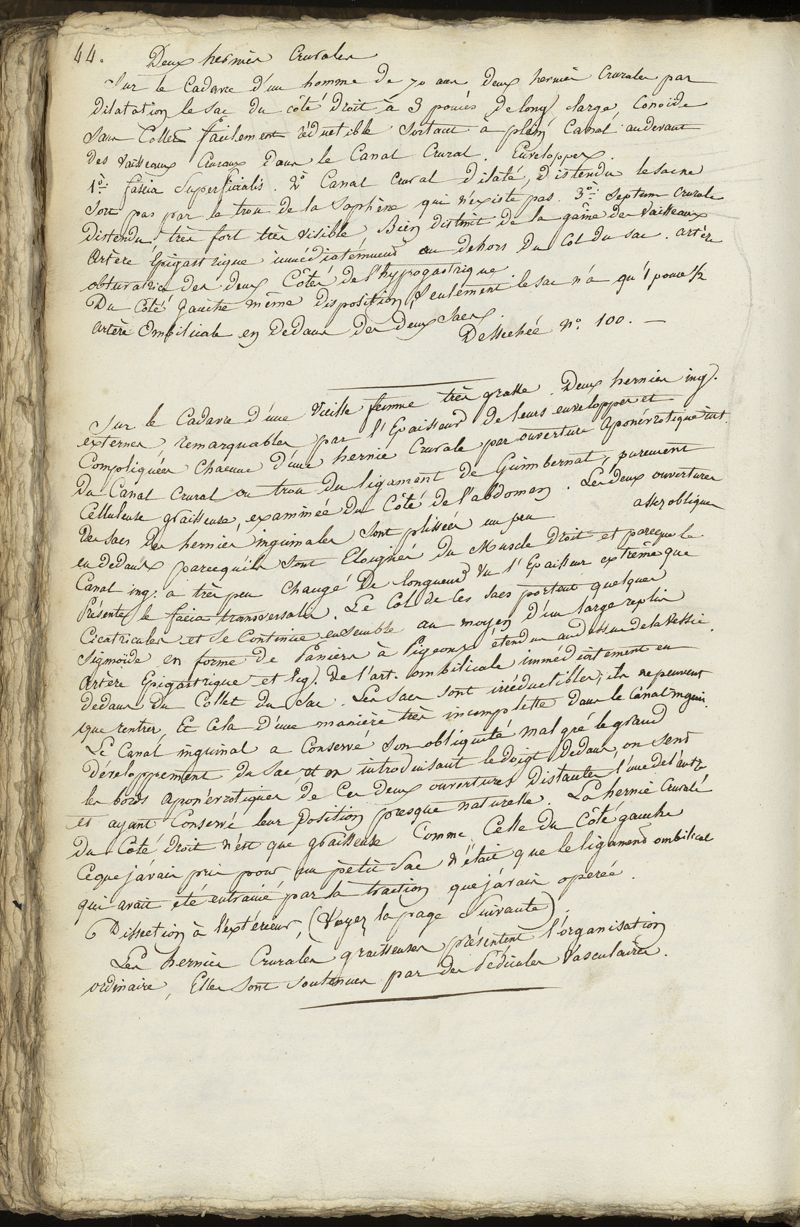 44.
Deux hernies Crurales
Sur le Cadavre d'un homme de 70 ans deux hernies Crurales par
dilatation le sac du côté droit a 3 pouces de long, large, Conoïde
Sans Collet facilement réductible Sortant à plein Canal audevant
des Vaisseaux Cruraux dans le Canal Crural. Enveloppes.
1º: fascia Superficialis. 2º Canal Crural dilaté, distendu le sac ne
Sort pas par le trou de la Saphène qui n'existe pas. 3º: Septum Crurale
distendu, très fort très visible Bien distinct de la gaîne des Vaisseaux
Artère Epigastrique immédiatement en dehors du Col du sac. Artère
obturatrice des deux Côtés de l'hypogastrique.
Du Côté gauche même disposition, Seulement le sac n'a qu'1 pouce 1/2
Artère Ombilicale en Dedans des Deux Sacs.
Dessechée nº. 100. —
Sur le Cadavre d'une Vieille femme très grasse. Deux hernies ing.
externes, remarquables par l'Epaisseur de leurs enveloppes et
Compliquées Chacune d'une hernie Crurale par ouverture Aponévrotique int.
du Canal Crural ou trou du ligament de Guimbernat, purement
Celluleuse graisseuse, examinée du Côté de l'abdomen. Les deux ouvertures
des sacs des hernies inguinales sont plissées un peu assez obliques
en dedans parcequ'ils sont Eloignés du Muscle droit et parceque le
Canal ing. a très peu Changé De longueur Vu l'Epaisseur extrême que
Présente le fascia transversalis. Le Col de Ces sacs portent quelques
Cicatricules et se Continue ensemble au moyen d'un large replin
Sigmoïde en forme de Paniers à Pigeons étendu au dessus de la Vessie.
Artère Epigastrique et lig. De l'art. ombilicale immédiatement en
dedans du Collet du Sac. Les Sacs sont irréductibles, ils ne peuvent
que rentrer, Et Cela d'une manière très incomplette dans le Canal inguin.
Le Canal inguinal a Conservé Son obliquité malgré le grand
développement du Sac, et en introduisant le doigt Dedans, on sent
les bords Aponévrotiques de Ces deux ouvertures Distantes l'une de l'autre
et ayant Conservé leur position presque naturelle. La hernie Crurale
du Coté droit n'est que graisseuse Comme Celle du Côté gauche
Ceque j'avais pris pour un petit Sac n'était que le ligament ombilical
qui avait été entrainé par la traction que j'avais operée.
Dissection à l'extérieur, (Voyez la page Suivante)
Les hernies Crurales graisseuses présentent l'organisation
ordinaire, Elles sont soutenues par des Pédicules Vasculaires.